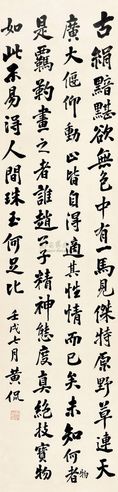 古絹黯黮欲無色中有一馬見傑特原野草連天
廣大偃仰動止皆自得適其性情而已矣未知何者
物
是羈靮畫之者誰趙公子精神態度真絕技寶物
如此未易得人間珠玉何足比
壬戌七月黃侃